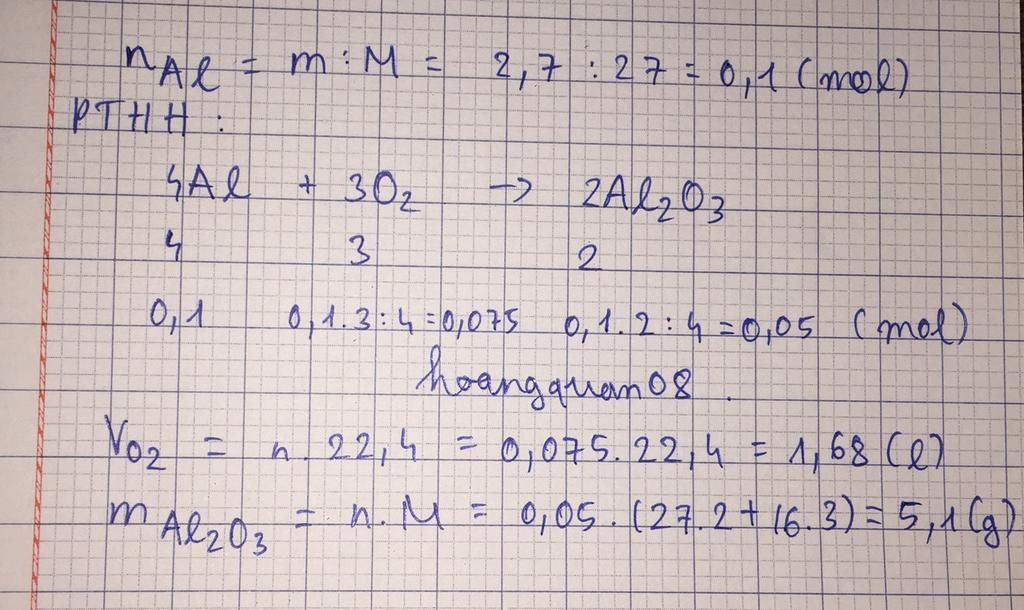 nAl = m : M = 2,7 : 27 = 0,1 (mol)
PTHH :
4Al + 3O2 → 2Al2O3
4 3 2
0,1 0,1.3:4=0,075 0,1.2:4=0,05 (mol)
hoangquan08.
VO2 = n. 22,4 = 0,075.22,4 = 1,68 (l)
mAl2O3 = n.M = 0,05.(27.2+16.3)=5,1(g)